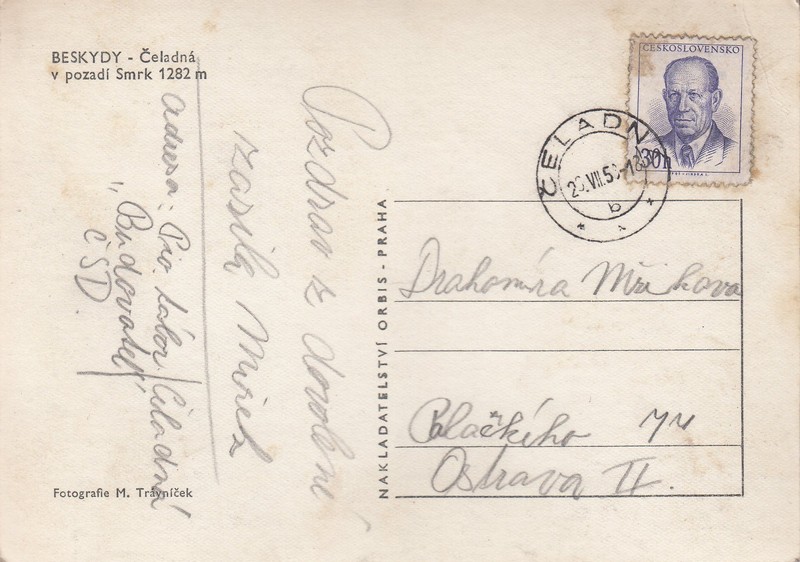 BESKYDY - Čeladná
v pozadí Smrk 1282 m
Pozdrav z dovolení
zasílá Mirek
Adresa: Pio tábor Čeladná
"Budovatel"
ČSD
Fotografie M. Trávníček
NAKLADATELSTVÍ ORBIS - PRAHA
ČESKOSLOVENSKO
30 h
ČELADNÁ
VII.5
b
Drahomíra
Palackého
Ostrava II.